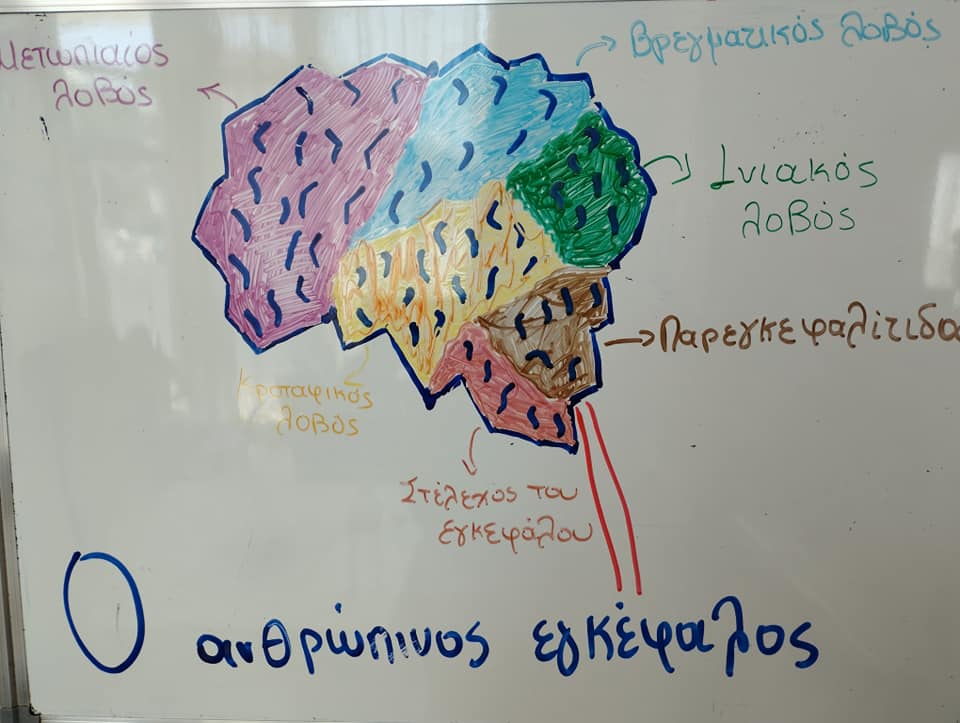 Μετωπιαίος
λοβός
Βρεγματικός λοβός
Ινιακός
λοβός
Παρεγκεφαλίτιδα
Κροταφικός
λοβός
Στέλεχος του
εγκεφάλου
Ο ανθρώπινος εγκέφαλος